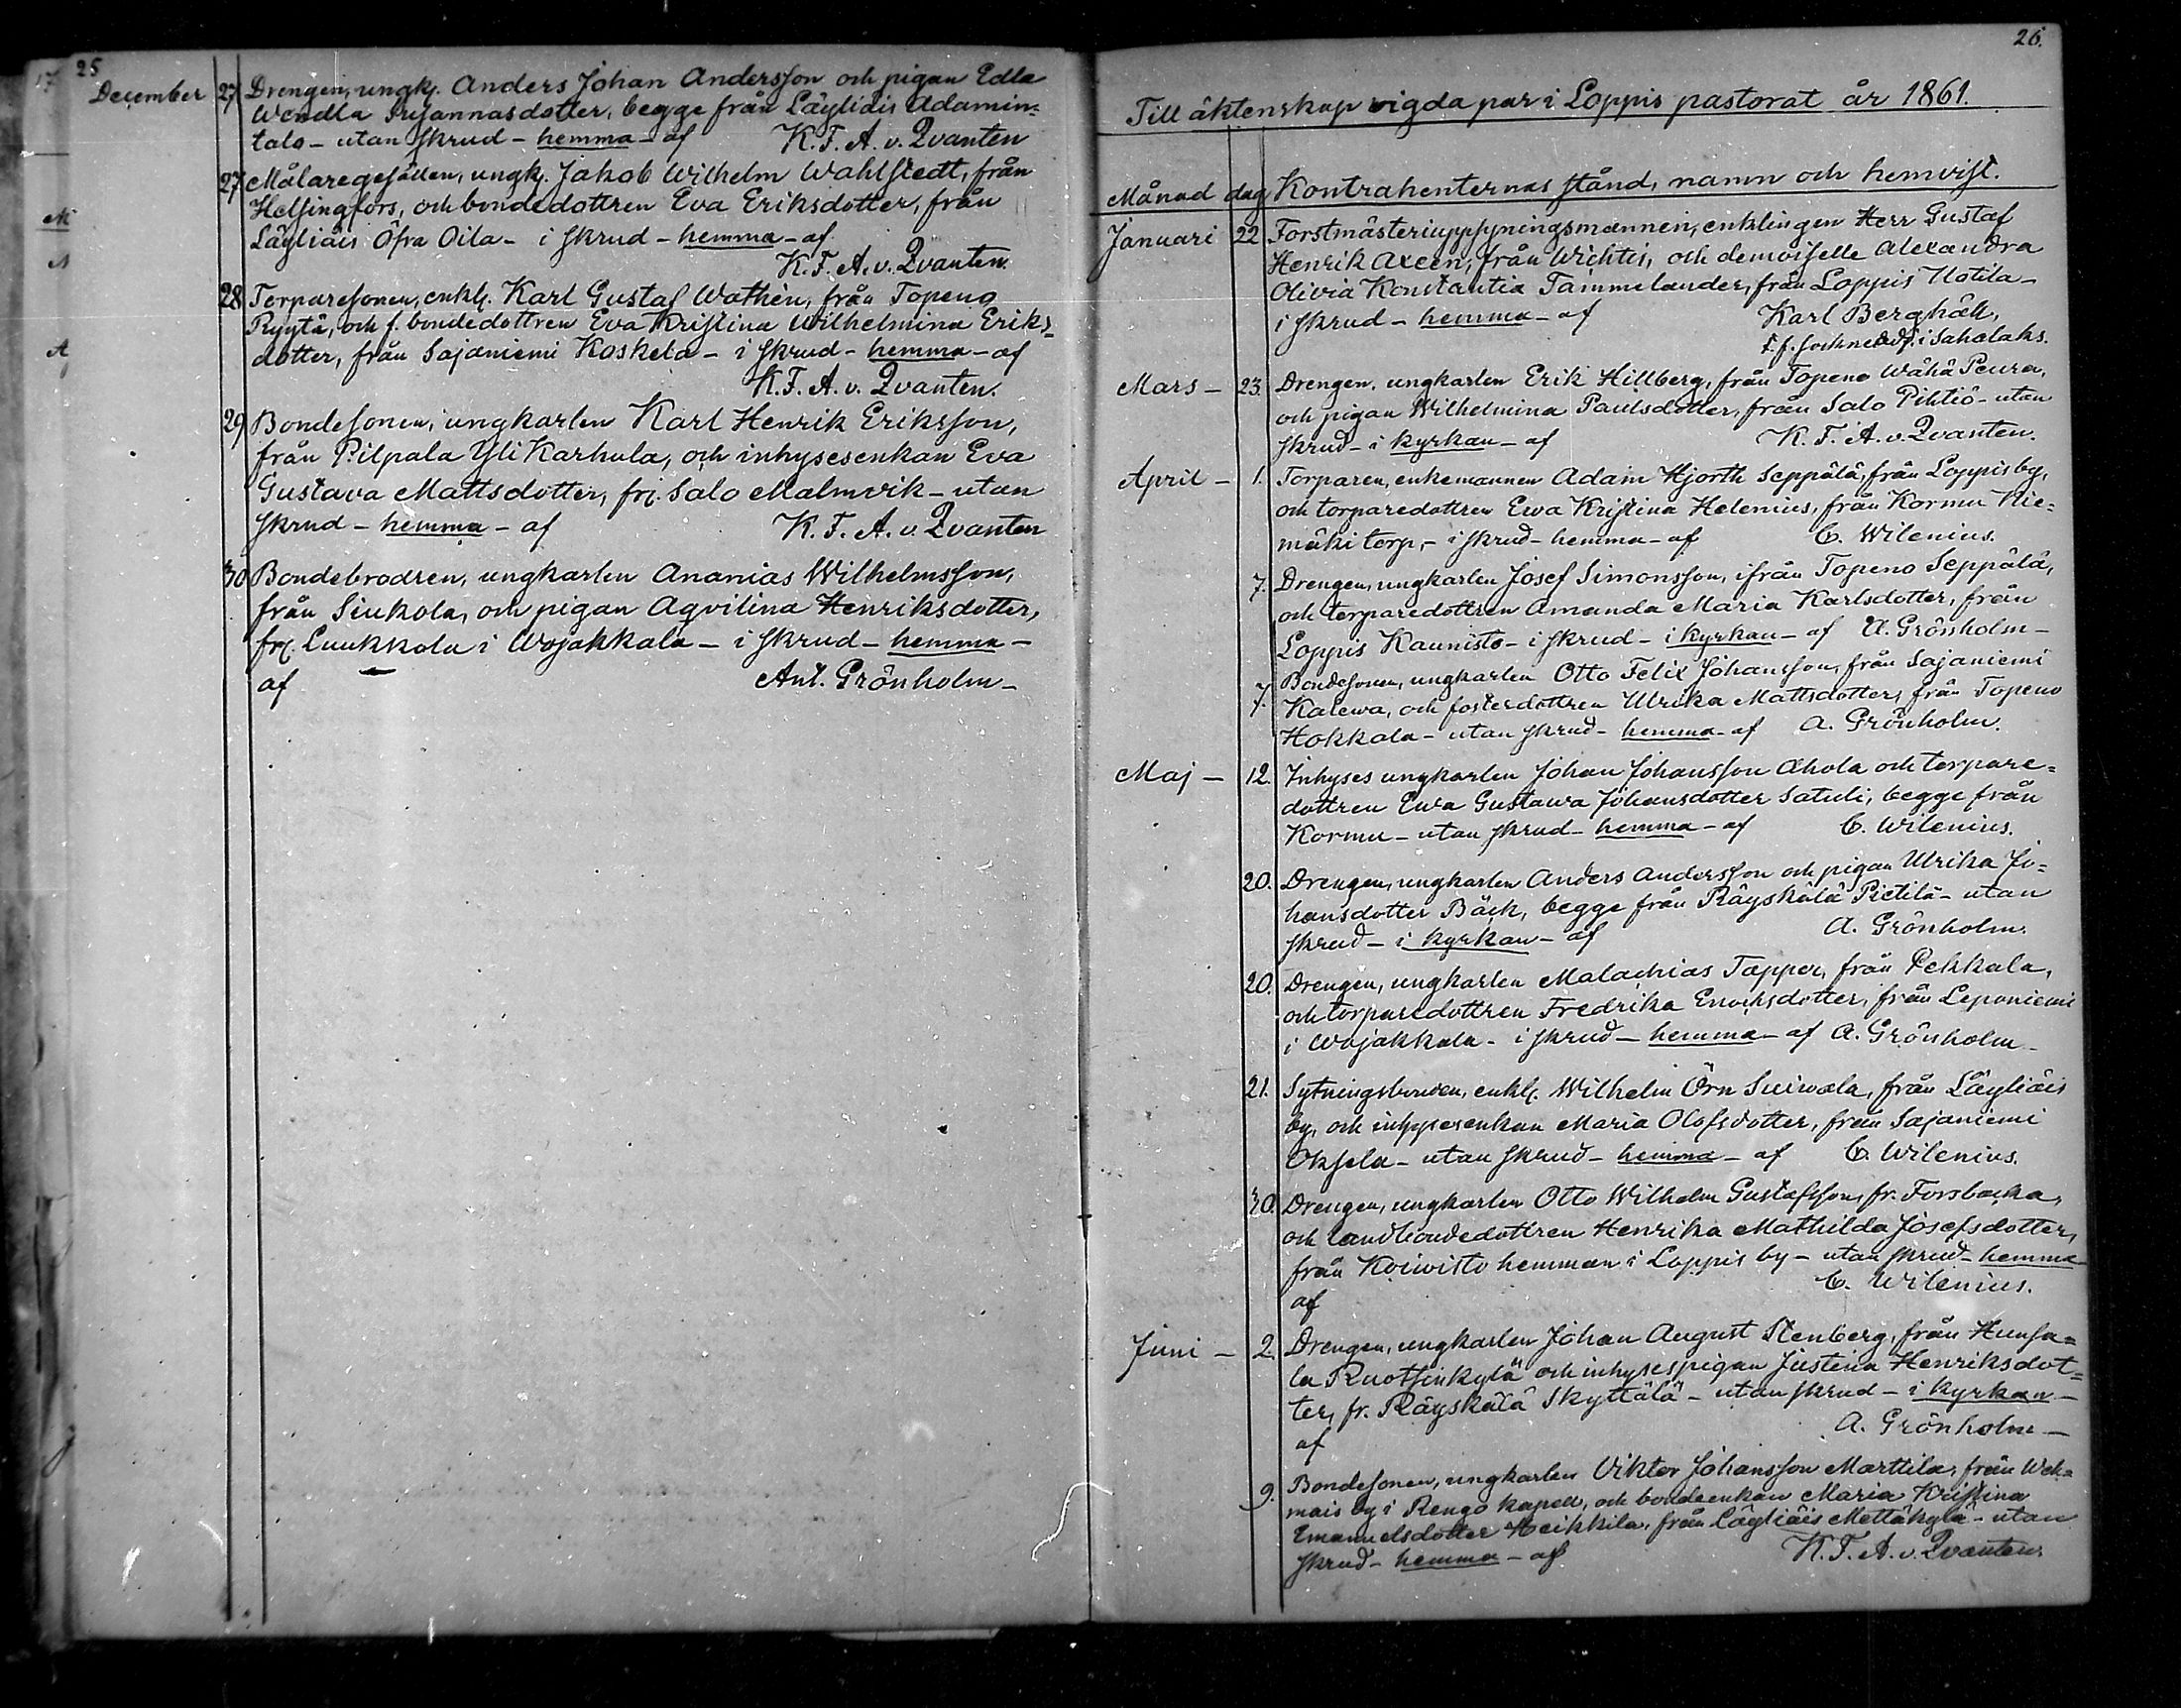 25
December 27 Drengen, ungk. Anders Johan Andersson och pigan Edla
Wendla Susannasdotter, begge från Läyliäis Adamin=
talo - utan skrud - hemma - af K. F. A. v. Qvanten
27 Målaregesällen, ungk. Jakob Wilhelm Wahlstedt, från
Helsingfors, och bondedottren Eva Eriksdotter, från
Läyliäis Öfra Oila - i skrud - hemma - af
K. F. A. v. Qvanten.
28 Torparesonen, enkl. Karl Gustaf Wathén, från Topeno
Ryytä, och f. bondedottren Eva Kristina Wilhelmina Eriks=
dotter, från Sajaniemi Koskela - i skrud - hemma - af
K. F. A. v. Qvanten.
29 Bondesonen, ungkarlen Karl Henrik Eriksson,
från Pilpala Yli Karhula, och inhysesenkan Eva
Gustava Mattsdotter, fr. Salo Malmvik - utan
skrud - hemma - af K. F. A. v. Qvanten
30 Bondebrodren, ungkarlen Ananias Wilhelmsson,
från Siukola, och pigan Aqvilina Henriksdotter,
fr. Luukkola i Wojakkala - i skrud - hemma -
af Ant. Grönholm -
26.
Till äktenskap vigda par i Loppis pastorat år 1861.
Månad dag Kontrahenternas stånd, namn och hemvist.
Januari 22 Forstmästeriuppsyningsmannen, enklingen Herr Gustaf
Henrik Axeen, från Wichtis, och demoiselle Alexandra
Olivia Konstantia Tammelander, från Loppis Uotila -
i skrud - hemma - af Karl Berghäll,
t. f. sockneadj. i Sahalaks.
Mars - 23. Drengen, ungkarlen Erik Hillberg, från Topeno Wähä Peura,
och pigan Wilhelmina Paulsdotter, från Salo Pihtiö - utan
skrud - i kyrkan - af K. F. A. v. Qvanten.
April - 1. Torparen, enkemannen Adam Hjorth Seppälä, från Loppis by,
och torparedottren Ewa Kristina Helenius, från Kormu Nie=
mäki torp, - i skrud - hemma - af C. Wilenius.
7. Drengen, ungkarlen Josef Simonsson, ifrån Topeno Seppälä,
och torparedottren Amanda Maria Karlsdotter, från
Loppis Kaunisto - i skrud - i kyrkan - af A. Grönholm -
7. Bondesonen, ungkarlen Otto Felix Johansson, från Sajaniemi
Kalewa, och fosterdottren Ulrika Mattsdotter, från Topeno
Hokkala - utan skrud - hemma - af A. Grönholm.
Maj - 12. Inhyses ungkarlen Johan Johansson Ahola och torpare=
dottren Ewa Gustawa Johansdotter Satuli, begge från
Kormu - utan skrud - hemma - af C. Wilenius.
20. Drengen, ungkarlen Anders Andersson och pigan Ulrika Jo=
hansdotter Bäck, begge från Räyskälä Pietilä - utan
skrud - i kyrkan - af A. Grönholm.
20. Drengen, ungkarlen Malachias Tapper, från Pekkala,
och torparedottren Fredrika Enochsdotter, från Leponiemi
i Wojakkala - i skrud - hemma - af A. Grönholm -
21. Sytningsbonden, enkl. Wilhelm Örn Suiwala, från Läyliäis
by, och inhysesenkan Maria Olofsdotter, från Sajaniemi
Oksela - utan skrud - hemma - af C. Wilenius.
30. Drengen, ungkarlen Otto Wilhelm Gustafsson, fr. Forsbacka,
och landbondedottren Henrika Mathilda Josefsdotter,
från Koiwisto hemman i Loppis by - utan skrud - hemma
af C. Wilenius.
Juni - 2. Drengen, ungkarlen Johan August Stenberg, från Hunsa=
la Ruotsinkylä och inhysespigan Justina Henriksdot=
ter, fr. Räyskälä Skyttälä - utan skrud - i kyrkan -
af A. Grönholm -
9. Bondesonen, ungkarlen Viktor Johansson Marttila, från Weh=
mais by i Rengo kapell, och bondeenkan Maria Kristina
Emanuelsdotter Heikkilä, från Läyliäis Mettäkylä - utan
skrud - hemma - af K. F. A. v. Qvanten.